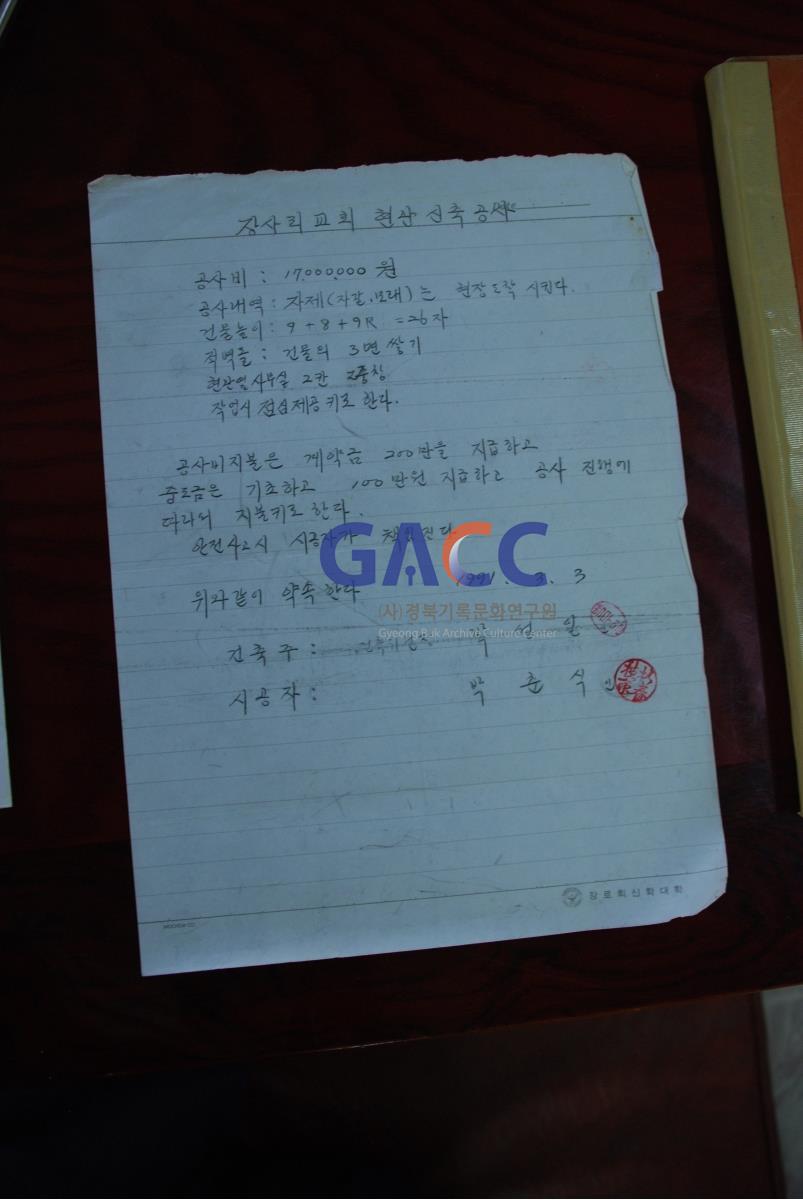 장사리교회 현관 신축 공사
공사비 : 17,000,000 원
공사내역 : 자제(자갈, 모래)는 현장도착 시킨다.
건물높이 : 9 + 8 + 9R = 26자
적벽돌 : 건물의 3면 쌓기
현관옆사무실 2칸 2중창
작업시 점심제공키로 한다.
공사비지불은 계약금 200만을 지급하고
중도금은 기초하고 100만원 지급하고 공사 진행에
따라서 지불키로 한다.
안전사고시 시공자가 책임진다
위와같이 약속한다 1991. 3. 3
건축주 :
시공자 : 박 춘 식 인
GACC
(사)경북기록문화연구원
Gyeong Buk Archive Culture Center
장로회신학대학